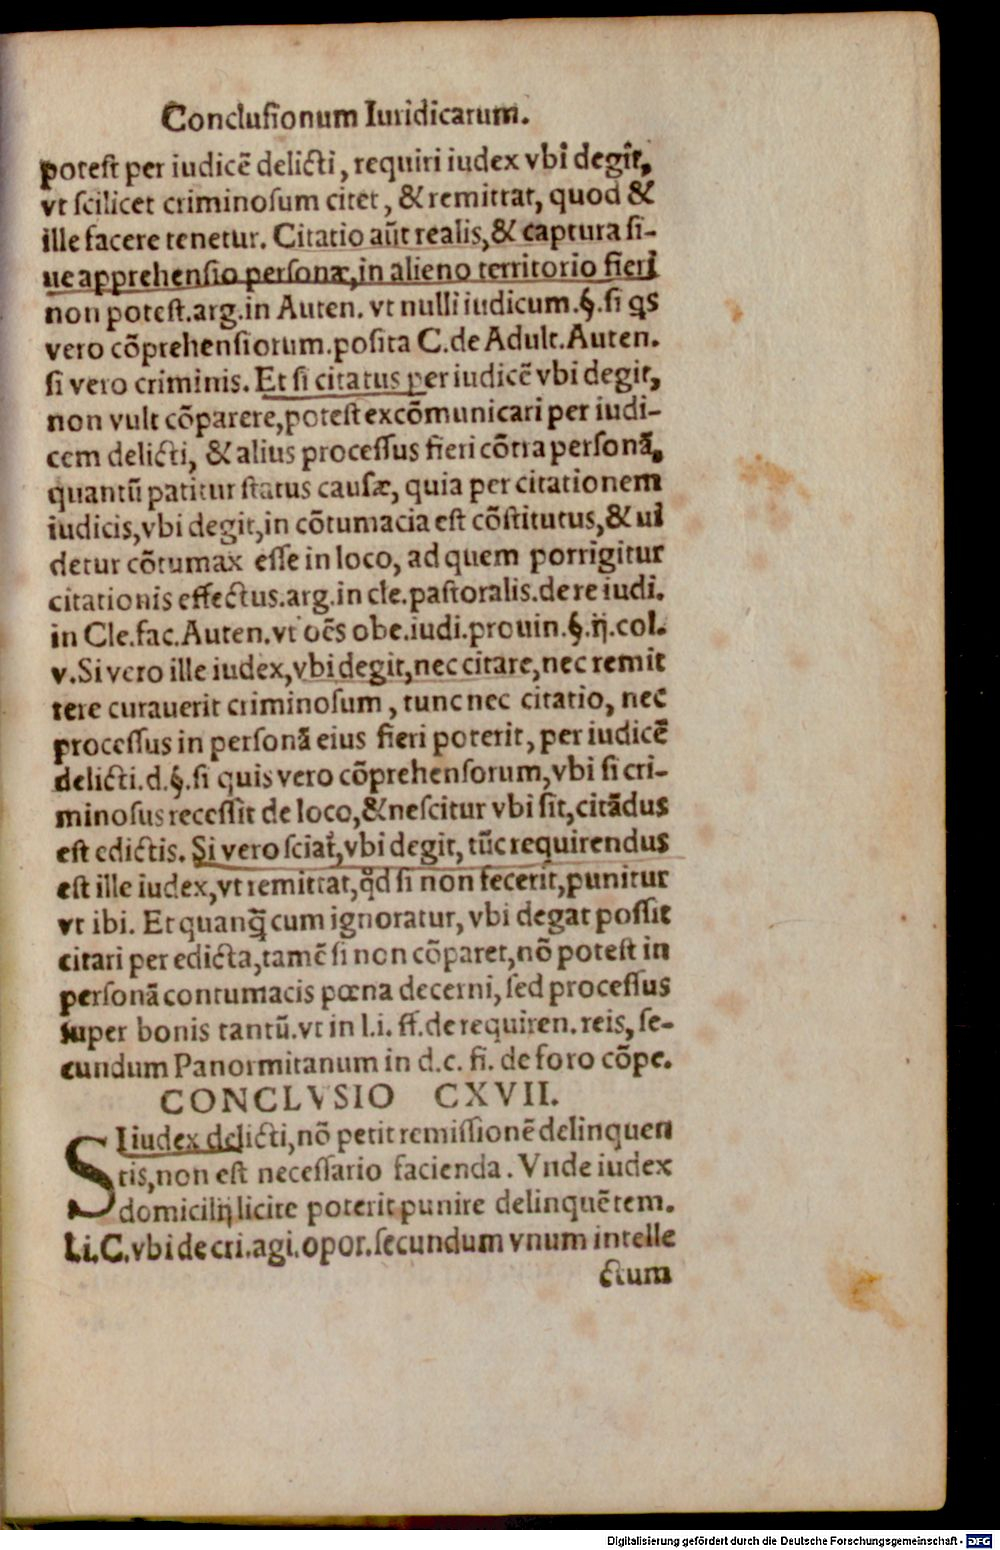 Conclusionum Iuridicarum.
potest per iudicẽ delicti, requiri iudex vbi degit,
vt scilicet criminosum citet, & remittat, quod &
ille facere tenetur. Citatio aũt realis, & captura si-
ue apprehensio personæ, in alieno territorio fieri
non potest. arg. in Auten. vt nulli iudicum. §. si qs
vero cõprehensiorum. posita C. de Adult. Auten.
si vero criminis. Et si citatus per iudicẽ vbi degit,
non vult cõparere, potest excõmunicari per iudi-
cem delicti, & alius processus fieri cõtra personã,
quantũ patitur status causæ, quia per citationem
iudicis, vbi degit, in cõtumacia est cõstitutus, & ui
detur cõtumax esse in loco, ad quem porrigitur
citationis effectus. arg. in cle. pastoralis. de re iudi.
in Cle. fac. Auten. vt oẽs obe. iudi. prouin. §. ij. col.
v. Si vero ille iudex, vbi degit, nec citare, nec remit
tere curauerit criminosum, tunc nec citatio, nec
processus in personã eius fieri poterit, per iudicẽ
delicti. d. §. si quis vero cõprehensorum, vbi si cri-
minosus recessit de loco, & nescitur vbi sit, citãdus
est edictis. Si vero sciat̃, vbi degit, tũc requirendus
est ille iudex, vt remittat, qd̃ si non fecerit, punitur
vt ibi. Et quanq̃ cum ignoratur, vbi degat possit
citari per edicta, tamẽ si non cõparet, nõ potest in
personã contumacis pœna decerni, sed processus
super bonis tantũ. vt in l. i. ff. de requiren. reis, se-
cundum Panormitanum in d. c. fi. de foro cõpe.
CONCLVSIO CXVII.
SI iudex delicti, nõ petit remissionẽ delinquen
tis, non est necessario facienda. Vnde iudex
domicilij licite poterit punire delinquẽtem.
l. i. C. vbi de cri. agi. opor. secundum vnum intelle
ctum
Digitalisierung gefördert durch die Deutsche Forschungsgemeinschaft - DFG